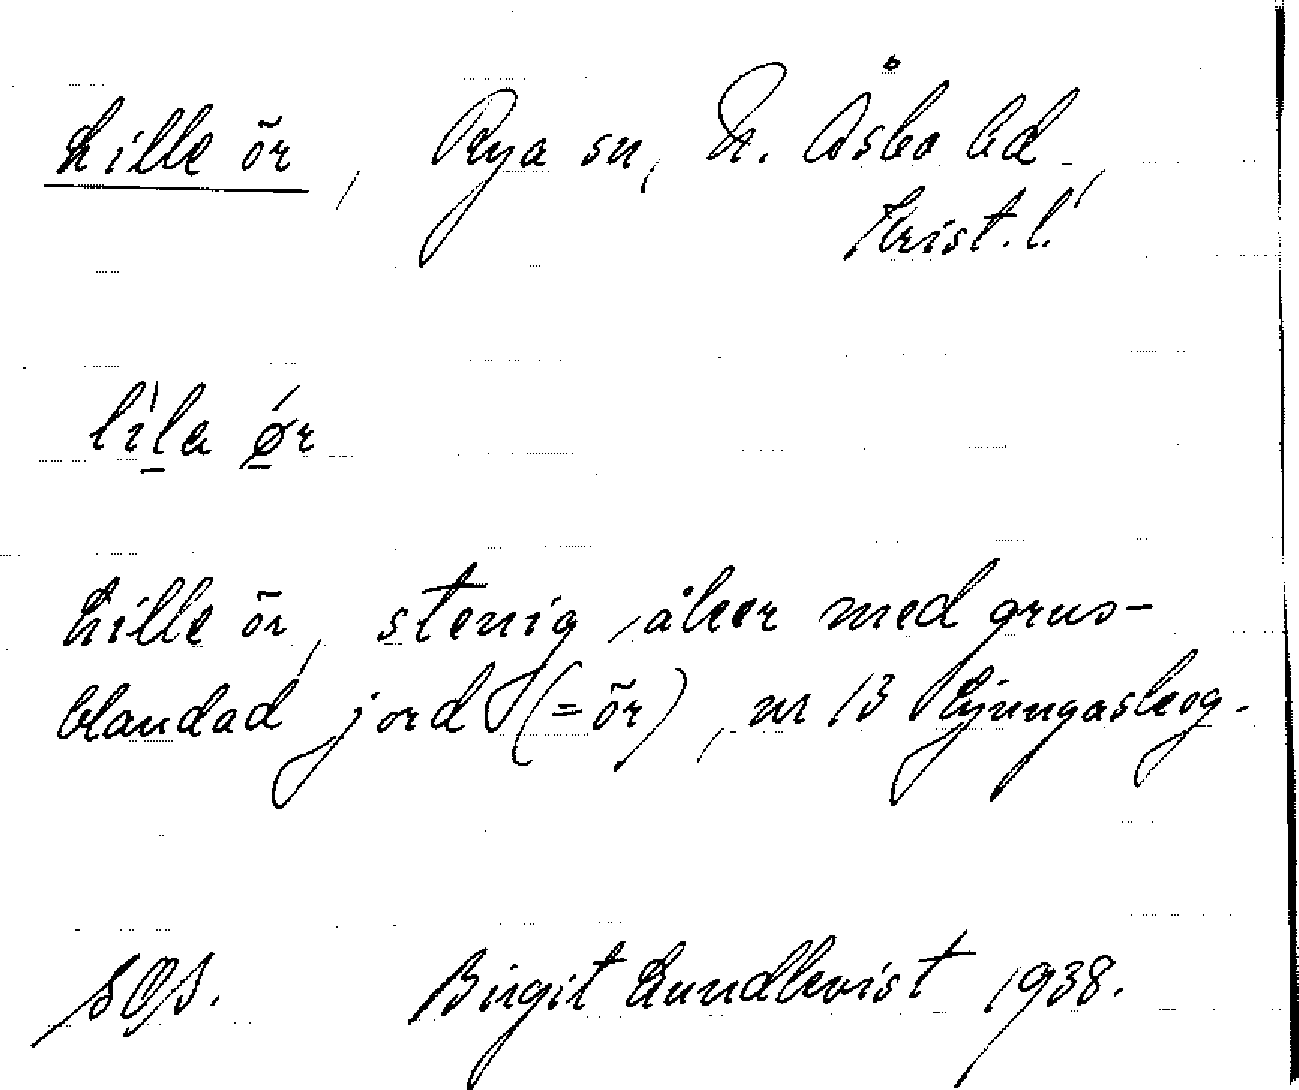 Lille ör, Rya sn, N. Åsbo hd,
Krist. l.
lìla ǿ̱r
Lille ör, stenig åker med grus-
blandad jord (= ör), nr 13 Ljungaskog.
SOS. Birgit Lundkvist 1938.